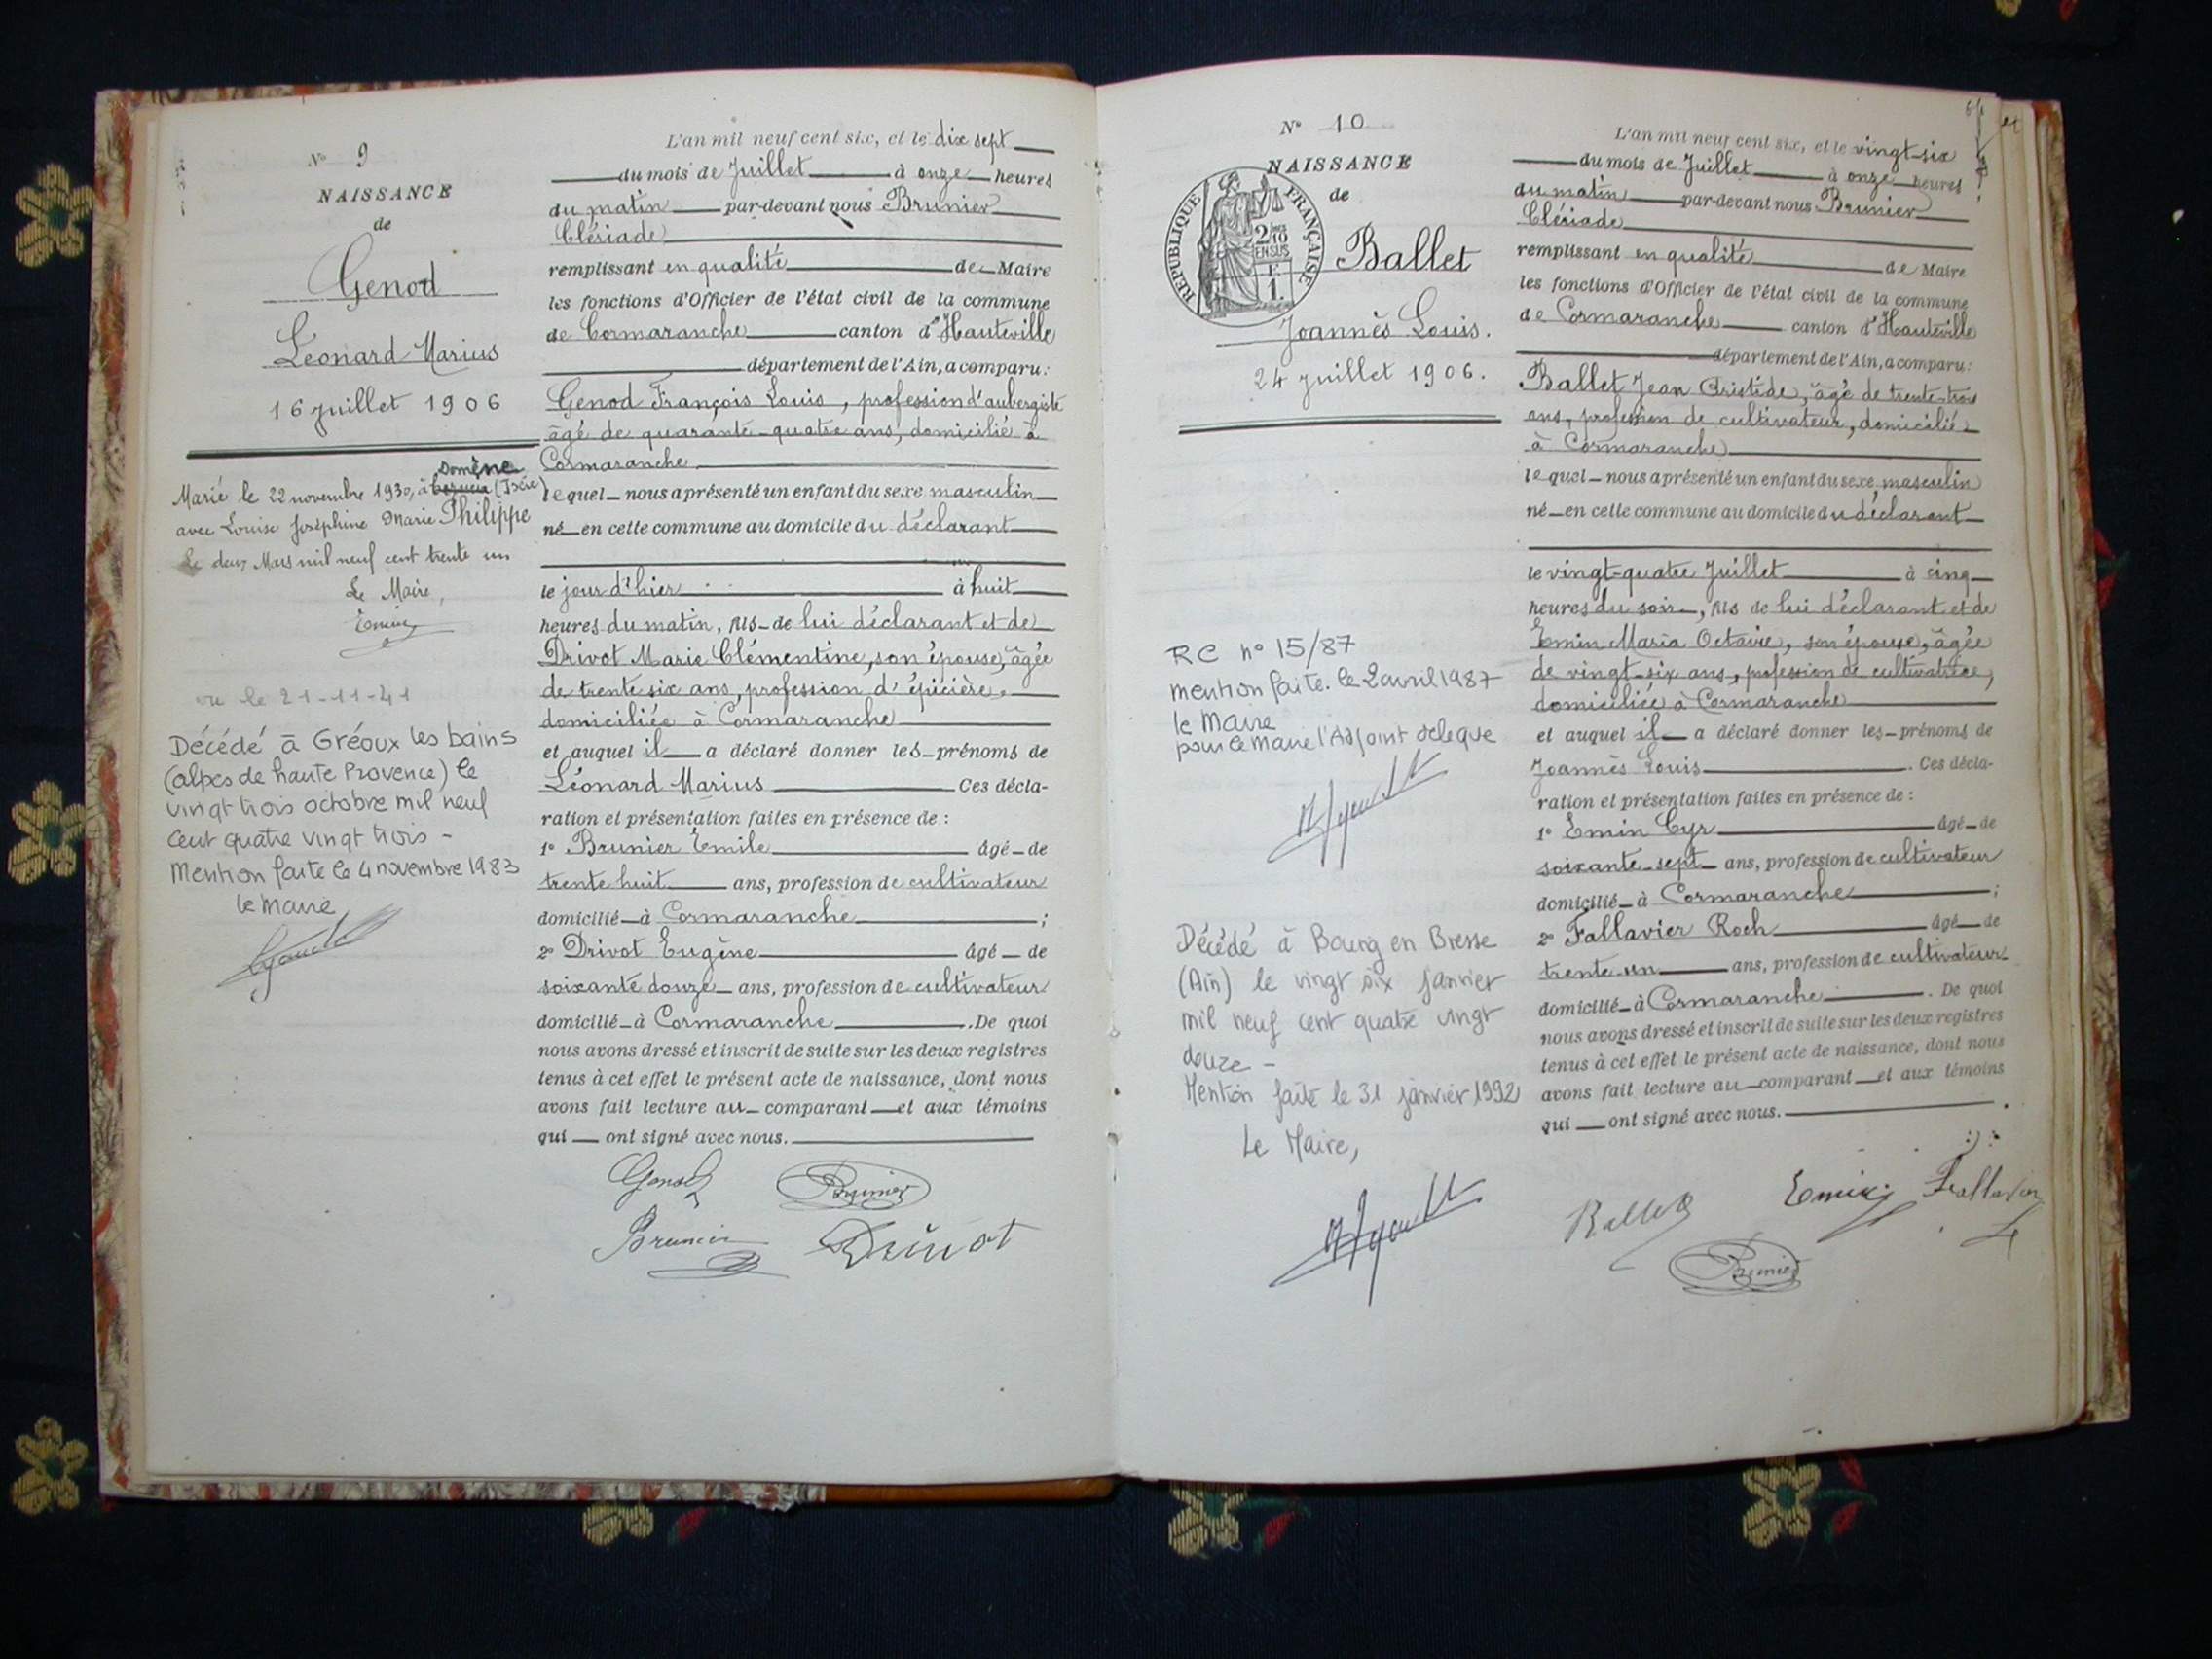 N° 9
NAISSANCE
de
Genod
Léonard Marius
16 Juillet 1906
Domène
Marié le 22 novembre 1930, à (Isère)
avec Louise Joséphine Marie Philippe
Le deux Mars mil neuf cent trente un
Le Maire,
Emin
vu le 21-11-41
Décédé à Gréoux les bains
(alpes de haute Provence) le
vingt trois octobre mil neuf
cent quatre vingt trois -
Mention faite le 4 novembre 1983
le maire
L'an mil neuf cent six, et le dix sept
du mois de Juillet à onze heures
du matin par-devant nous Brunier
Clériade
remplissant en qualité de Maire
les fonctions d'Officier de l'état civil de la commune
de Cormaranche canton d'Hauteville
département de l'Ain, a comparu :
Genod François Louis, profession d'aubergiste
âgé de quarante-quatre ans, domicilié à
Cormaranche
lequel nous a présenté un enfant du sexe masculin
né en cette commune au domicile du déclarant
le jour d'hier à huit
heures du matin, fils de lui déclarant et de
Drivot Marie Clémentine, son épouse, âgée
de trente six ans, profession d'épicière,
domiciliée à Cormaranche
et auquel il a déclaré donner les prénoms de
Léonard Marius Ces décla-
ration et présentation faites en présence de :
1° Brunier Emile âgé de
trente huit ans, profession de cultivateur
domicilié à Cormaranche ;
2° Drivot Eugène âgé de
soixante douze ans, profession de cultivateur
domicilié à Cormaranche . De quoi
nous avons dressé et inscrit de suite sur les deux registres
tenus à cet effet le présent acte de naissance, dont nous
avons fait lecture au comparant et aux témoins
qui ont signé avec nous.
Genod Brunier
Brunier Drivot
N° 10
NAISSANCE
de
RÉPUBLIQUE FRANÇAISE
2/10
EN SUS
1.
Ballet
Joannès Louis.
24 Juillet 1906.
RC n° 15/87
mention faite. le 2 avril 1987
le Maire
pour le Maire l'Adjoint délégué
Décédé à Bourg en Bresse
(Ain) le vingt six janvier
mil neuf cent quatre vingt
douze -
Mention faite le 31 janvier 1992
Le Maire,
L'an mil neuf cent six, et le vingt-six
du mois de Juillet à onze heures
du matin par-devant nous Brunier
Clériade
remplissant en qualité de Maire
les fonctions d'Officier de l'état civil de la commune
de Cormaranche canton d'Hauteville
département de l'Ain, a comparu :
Ballet Jean Aristide, âgé de trente-trois
ans, profession de cultivateur, domicilié
à Cormaranche
lequel nous a présenté un enfant du sexe masculin
né en cette commune au domicile du déclarant
le vingt-quatre Juillet à cinq
heures du soir, fils de lui déclarant et de
Emin Maria Octavie, son épouse, âgée
de vingt-six ans, profession de cultivatrice,
domiciliée à Cormaranche
et auquel il a déclaré donner les prénoms de
Joannès Louis . Ces décla-
ration et présentation faites en présence de :
1° Emin Cyr âgé de
soixante-sept ans, profession de cultivateur
domicilié à Cormaranche ;
2° Fallavier Roch âgé de
trente-un ans, profession de cultivateur
domicilié à Cormaranche . De quoi
nous avons dressé et inscrit de suite sur les deux registres
tenus à cet effet le présent acte de naissance, dont nous
avons fait lecture au comparant et aux témoins
qui ont signé avec nous.
Ballet Emin Fallavier
Brunier